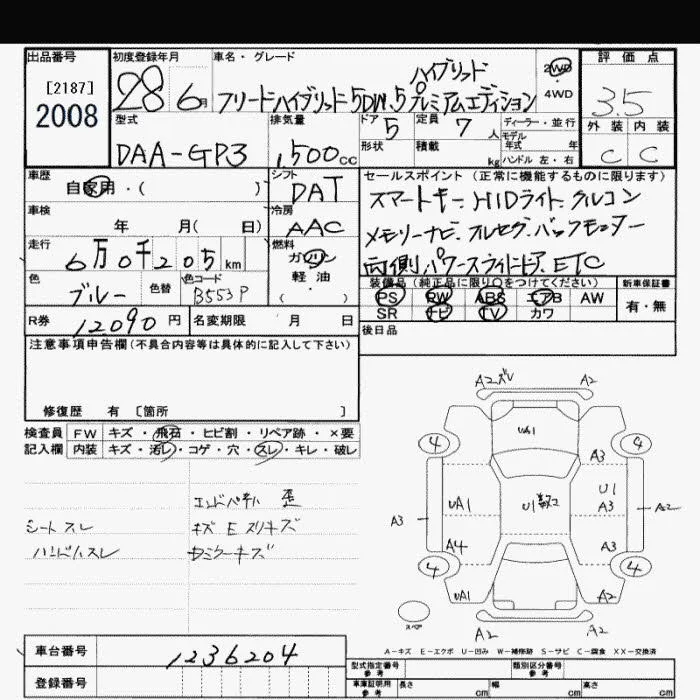 出品番号
[2187]
2008
初度登録年月
28 6月
車名・グレード
ハイブリッド
フリードハイブリッド 5DW 1.5 プレミアムエディション
2WD
4WD
評価点
3.5
外装 内装
C C
型式
DAA-GP3
排気量
1,500cc
ドア 5
形状
定員 7 人
積載 kg
ディーラー・並行
モデル
年式 年
ハンドル 左・右
車歴
自家用・( )
シフト
DAT
車検
年 月( 日)
冷房
AAC
走行
6万0千205km
燃料
ガソリン
軽油
( ・ )
色
ブルー
色替
色コード
B553P
R券 12090円
名変期限 月 日
セールスポイント(正常に機能するものに限ります)
スマートキー、HIDライト、クルコン
メモリーナビ、フルセグ、バックモニター
両側パワースライドドア、ETC
装備品(純正品に限り○をつけてください)
PS PW ABS エアB AW
SR ナビ TV カワ
新車保証書
有・無
後日品
注意事項申告欄(不具合内容等は具体的に記入して下さい)
修復歴 有 〔箇所 〕
検査員 FW キズ・飛石・ヒビ割・リペア跡・×要
記入欄 内装 キズ・汚レ・コゲ・穴・スレ・キレ・破レ
シートスレ
ハンドルスレ
歪
キズ E スリキズ
A2 ズレ A2
4 4
UA1
A3
UA1
U1
U1
A3
A3
A2
A4
A3
4 4
UA1
A2 A2
スペア
A-キズ E-エクボ U-凹み W-補修跡 S-サビ C-腐食 XX-交換済
車台番号 1236204
登録番号
型式指定番号
参考
類別区分番号
参考
車庫証明用
参考
長さ cm
幅 cm
高さ cm